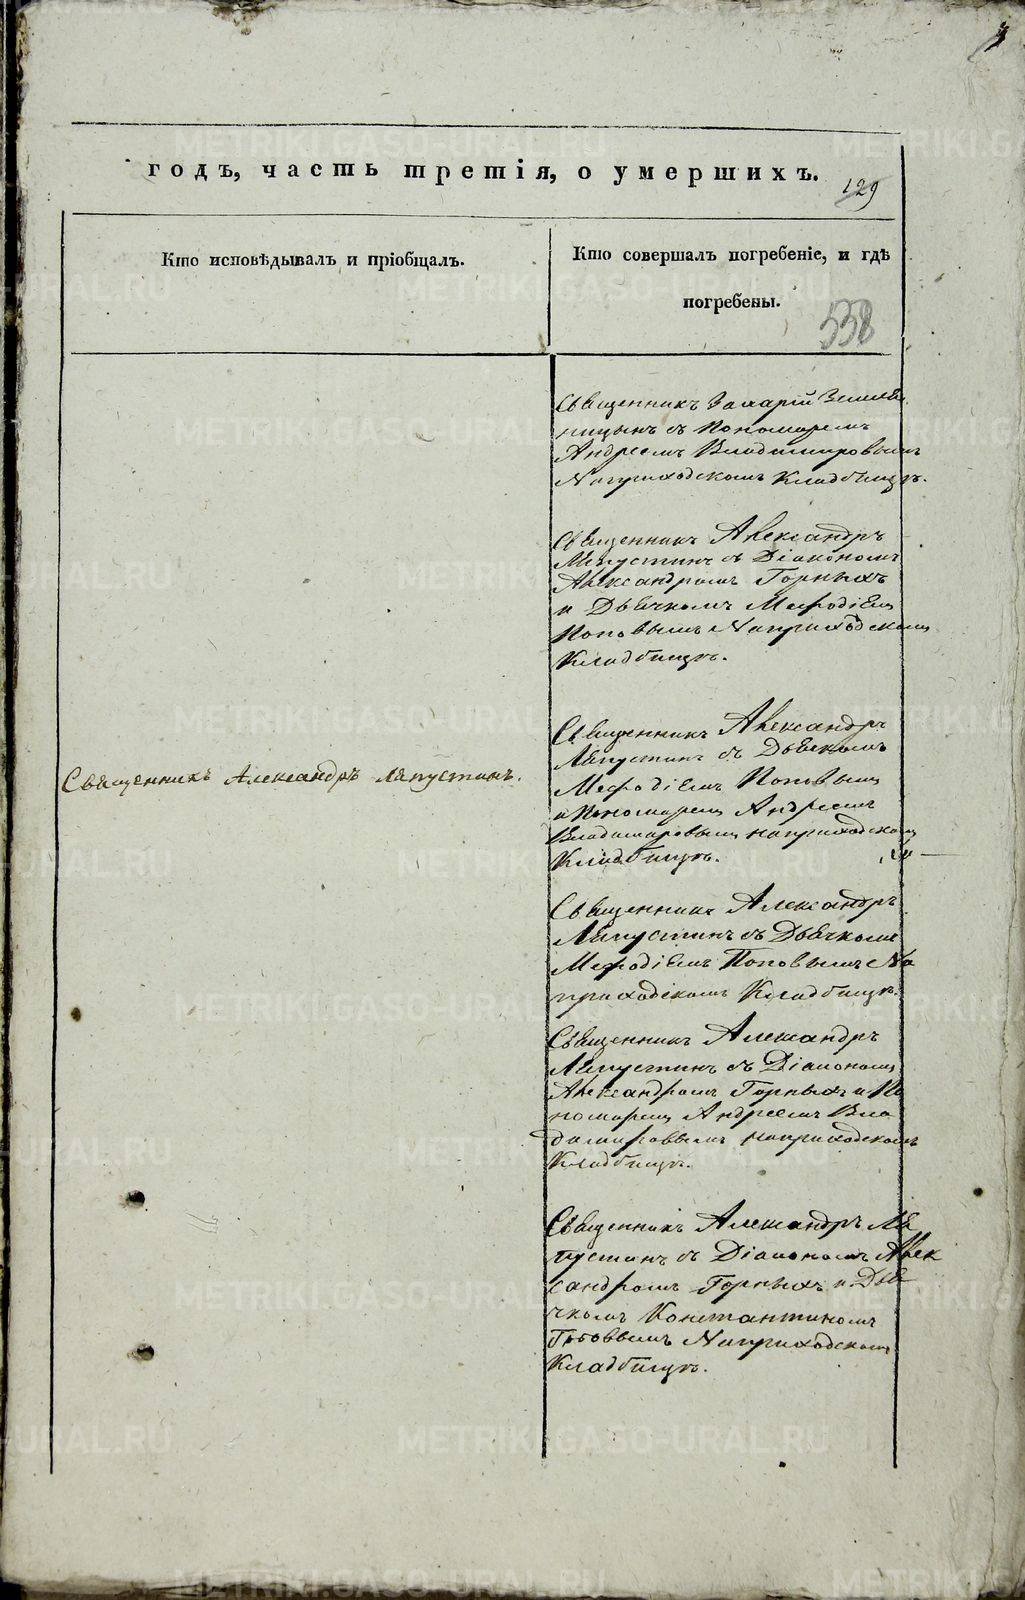 годъ, часть третія, о умершихъ.
129
Кто исповѣдывалъ и пріобщалъ.
Кто совершалъ погребеніе, и гдѣ
погребены.
538
Священникъ Захарій
съ Пономаремъ
Андреемъ Владимировымъ
На приходскомъ Кладбищѣ.
Священникъ Александръ
Ляпустинъ съ Діакономъ
Александромъ Горныхъ
и Дьячкомъ Мефодіемъ
Поповымъ На приходскомъ
Кладбищѣ.
Священникъ Александръ
Ляпустинъ съ Дьячкомъ
Священникъ Александръ Ляпустинъ.
Мефодіемъ Поповымъ
и Пономаремъ Андреемъ
Владимировымъ на приходскомъ
Кладбищѣ.
Священникъ Александръ
Ляпустинъ съ Дьячкомъ
Мефодіемъ Поповымъ На
приходскомъ Кладбищѣ.
Священникъ Александръ
Ляпустинъ съ Діакономъ
Александромъ Горныхъ и По
номаремъ Андреемъ Вла
димировымъ на приходскомъ
Кладбищѣ.
Священникъ Александръ Ля
пустинъ съ Діакономъ Алек
сандромъ Горныхъ и Дья
чкомъ Константиномъ
На приходскомъ
Кладбищѣ.
METRIKI.GASO-URAL.RU